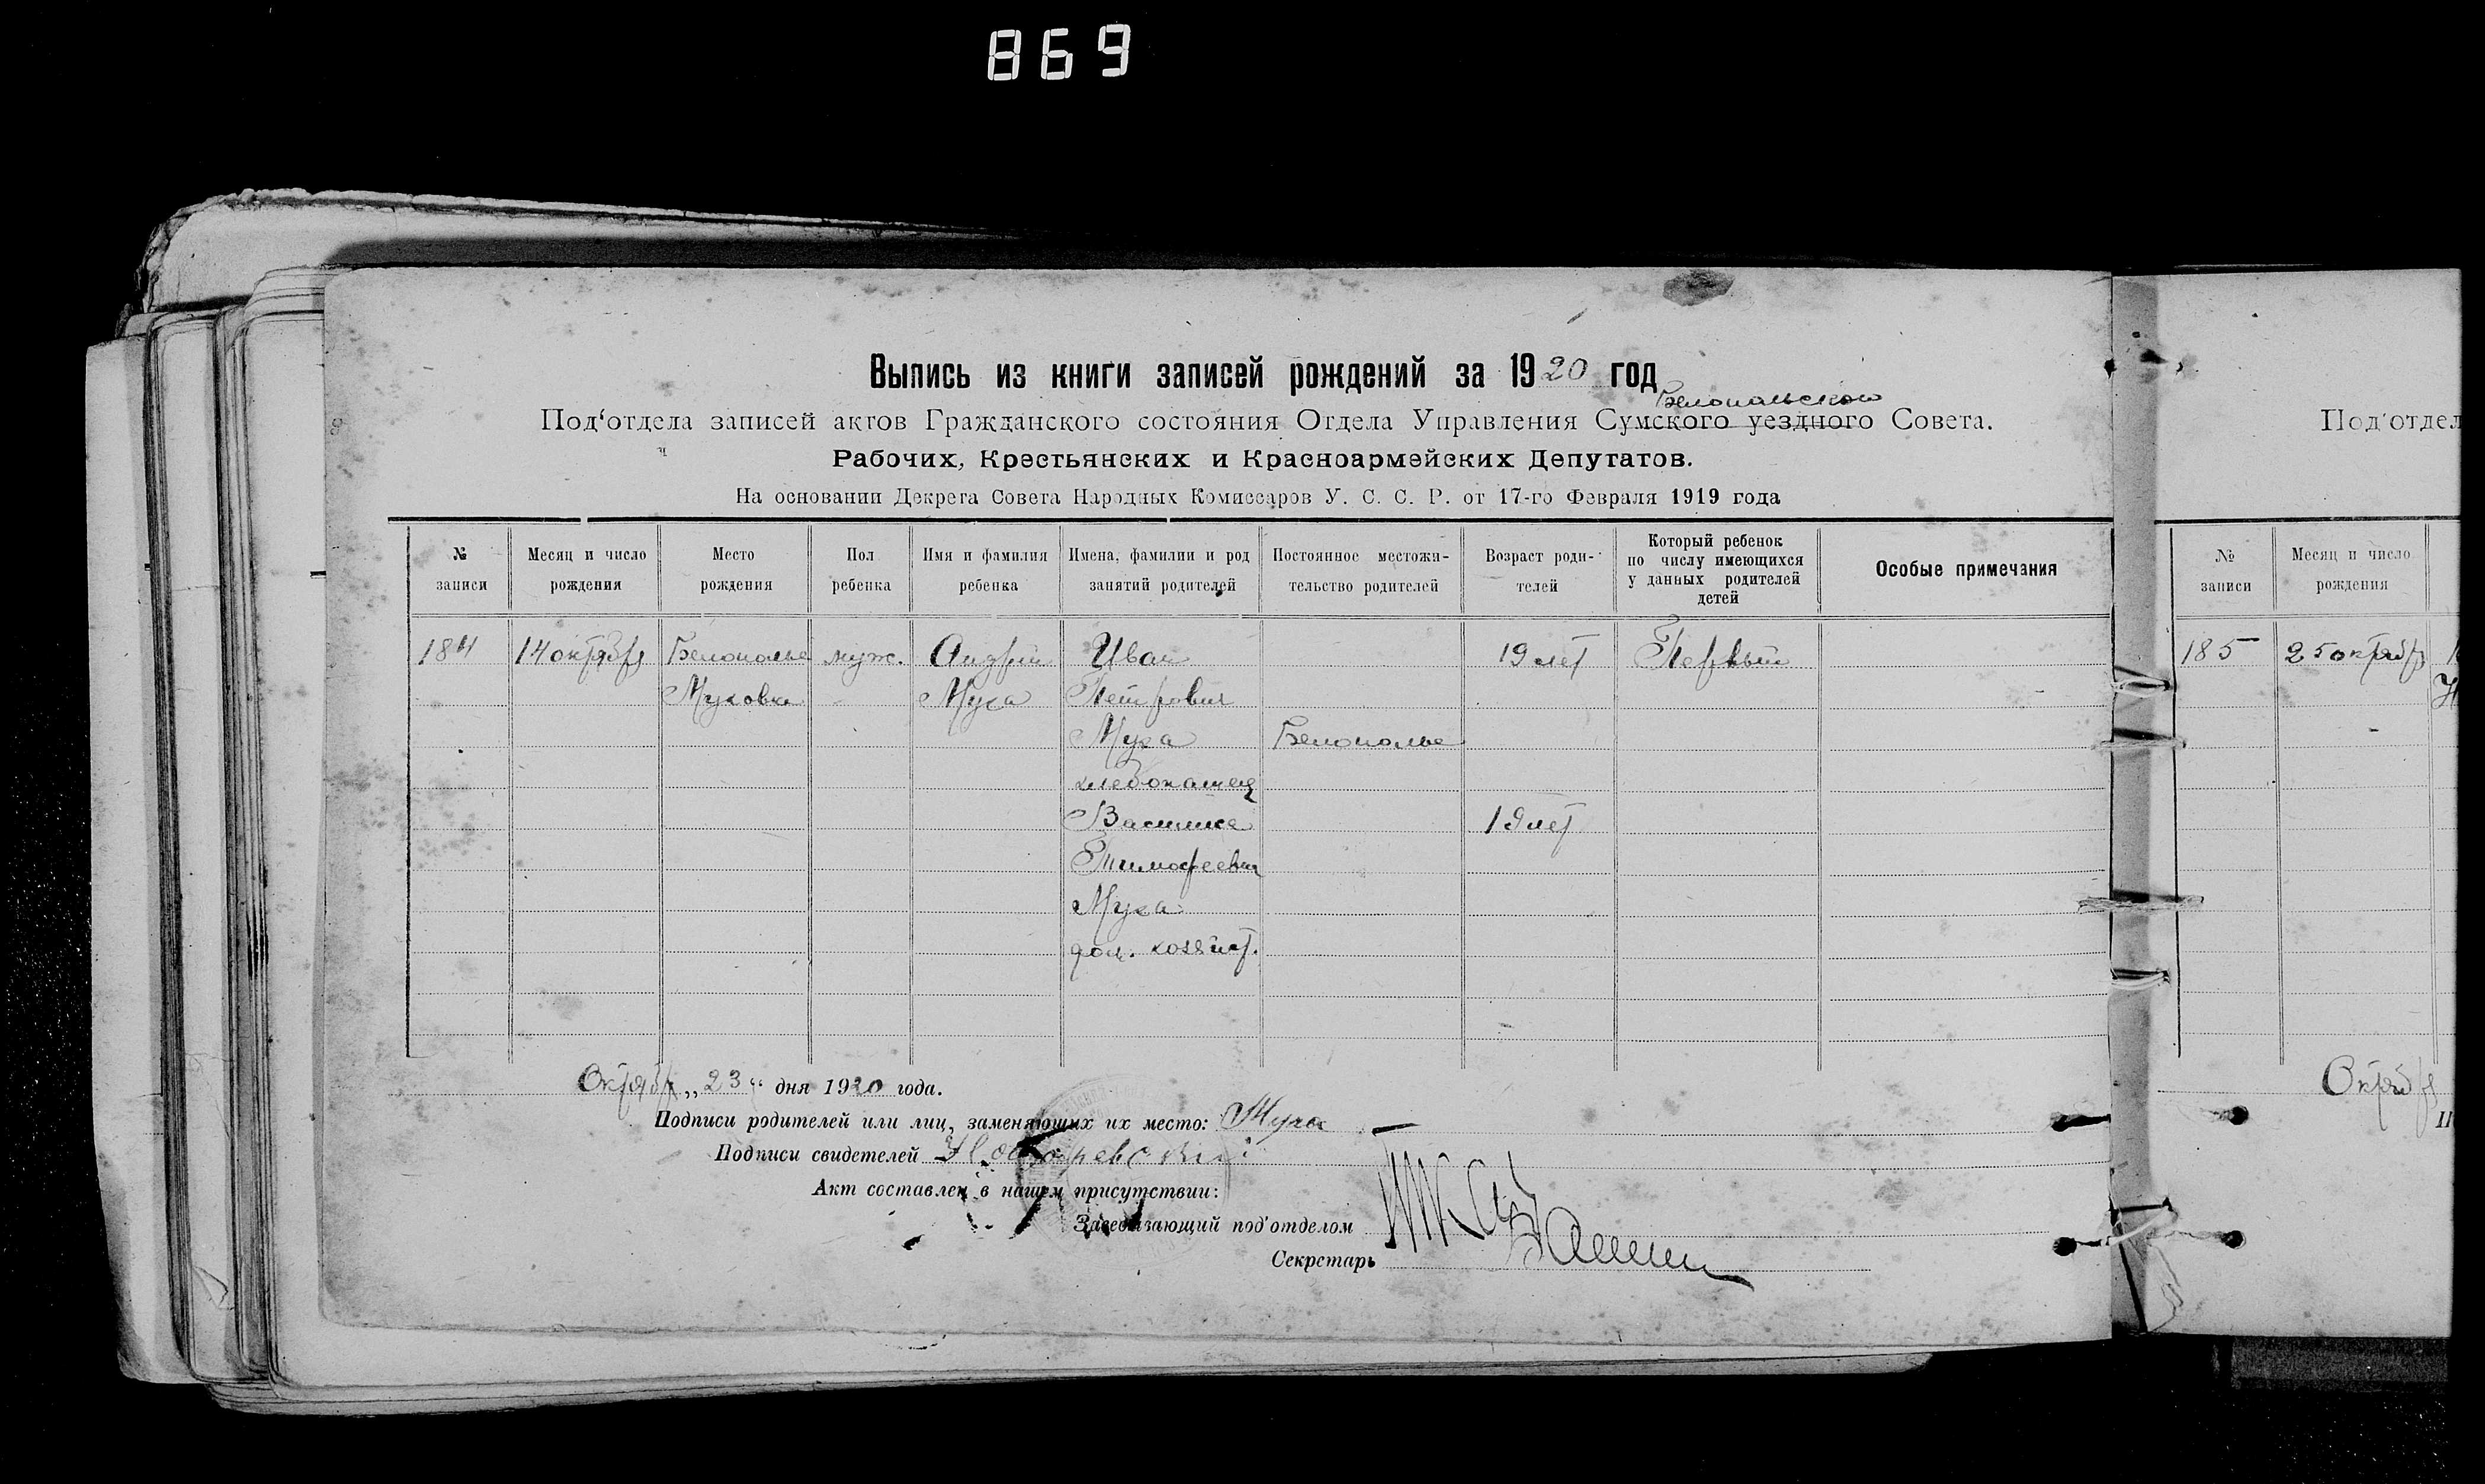 869
Выпись из книги записей рождений за 1920 год
Белопольского
Под'отдела записей актов Гражданского состояния Отдела Управления Сумского уездного Совета.
Рабочих, Крестьянских и Красноармейских Депутатов.
На основании Декрета Совета Народных Комиссаров У. С. С. Р. от 17-го Февраля 1919 года
№ записи
Месяц и число рождения
Место рождения
Пол ребенка
Имя и фамилия ребенка
Имена, фамилии и род занятий родителей
Постоянное местожи-тельство родителей
Возраст роди-телей
Который ребенок по числу имеющихся у данных родителей детей
Особые примечания
184 14 октября Белополье муж. Андрей Иван 19 лет Первый
Муховка Муха Петрович
Муха Белополье
хлебопашец
Василиса 19 лет
Тимофеевна
Муха
дом. хозяйст.
Октября „23“ дня 1920 года.
Подписи родителей или лиц, заменяющих их место: Муха
Подписи свидетелей
Акт составлен в нашем присутствии:
Заведывающий под'отделом
Секретарь
Под'отдел
№ записи
Месяц и число рождения
185 25 октября
Октября